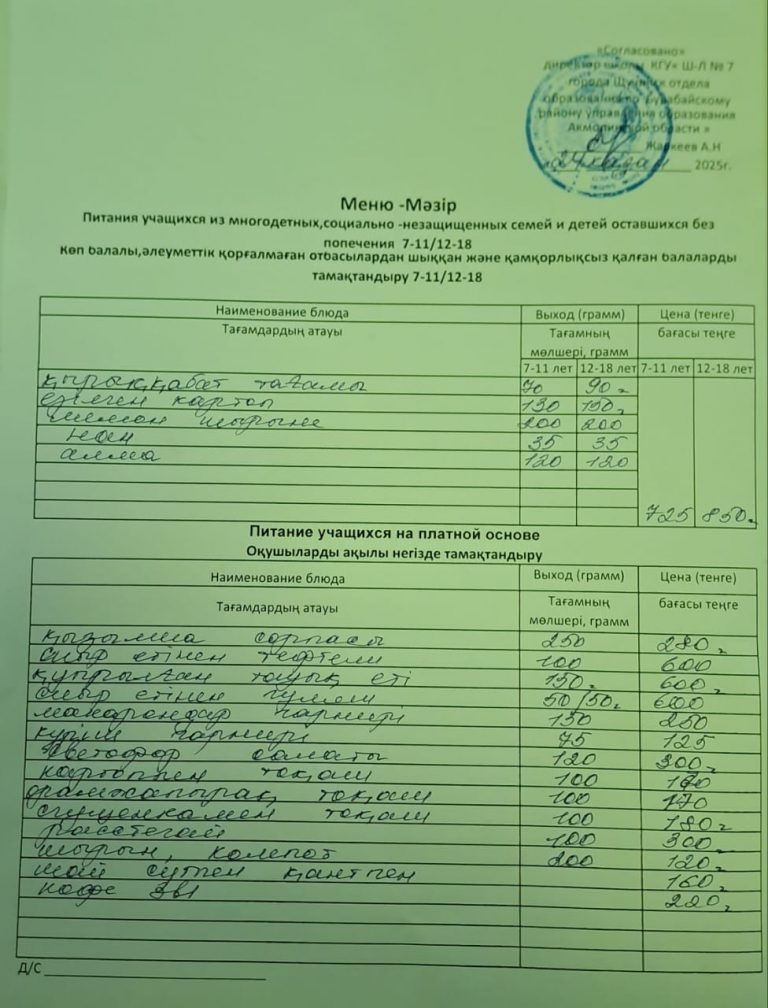 «Согласовано»
директор школы КГУ« Ш-Л № 7
города Щучинск отдела
образования по Бурабайскому
району управления образования
Акмолинской области »
Жакеев А.Н
2025г.
Меню -Мәзір
Питания учащихся из многодетных,социально -незащищенных семей и детей оставшихся без
попечения 7-11/12-18
Көп балалы,әлеуметтік қорғалмаған отбасылардан шыққан және қамқорлықсыз қалған балаларды
тамақтандыру 7-11/12-18
Наименование блюда Выход (грамм) Цена (тенге)
Тағамдардың атауы Тағамның мөлшері, грамм бағасы теңге
7-11 лет 12-18 лет 7-11 лет 12-18 лет
қырыққабат тағамы 70 90г
езілген картоп 130 150г
лимон шырыны 200 200
нан 35 35
алма 120 120
725 850г
Питание учащихся на платной основе
Оқушыларды ақылы негізде тамақтандыру
Наименование блюда Выход (грамм) Цена (тенге)
Тағамдардың атауы Тағамның мөлшері, грамм бағасы теңге
қызылша сорпасы 250 280г
сиыр етінен тефтели 100 600
қуырылған тауық еті 150г 600г
сиыр етінен гуляш 50/50г 600
макарондар гарнирі 150 250
күріш гарнирі 75 125
светофор салаты 120 300г
картоппен тоқаш 100 170
орамжапырақ тоқаш 100 170
сгущенкамен тоқаш 100 180г
расстегай 100 300г
шырын, компот 200 120г
шай сүтпен қантпен 160г
кофе 3в1 220г
Д/С